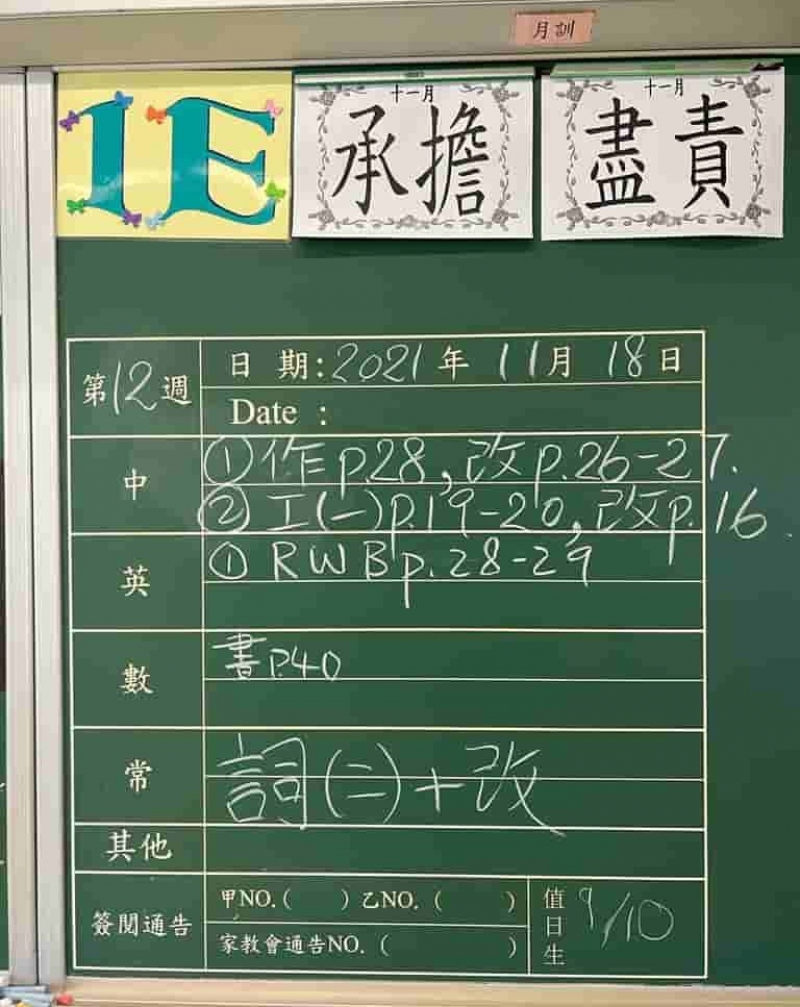 月訓
1E
十一月
承擔
十一月
盡責
第12週
日 期:2021年 11月 18日
Date :
中
①作p.28,改p.26-27.
②工(一)p.19-20,改p.16.
英
① RWB p.28-29
數
書P.40
常
詞(二)+改
其他
簽閱通告
甲NO.( ) 乙NO. ( )
家教會通告NO. ( )
值日生 9/10